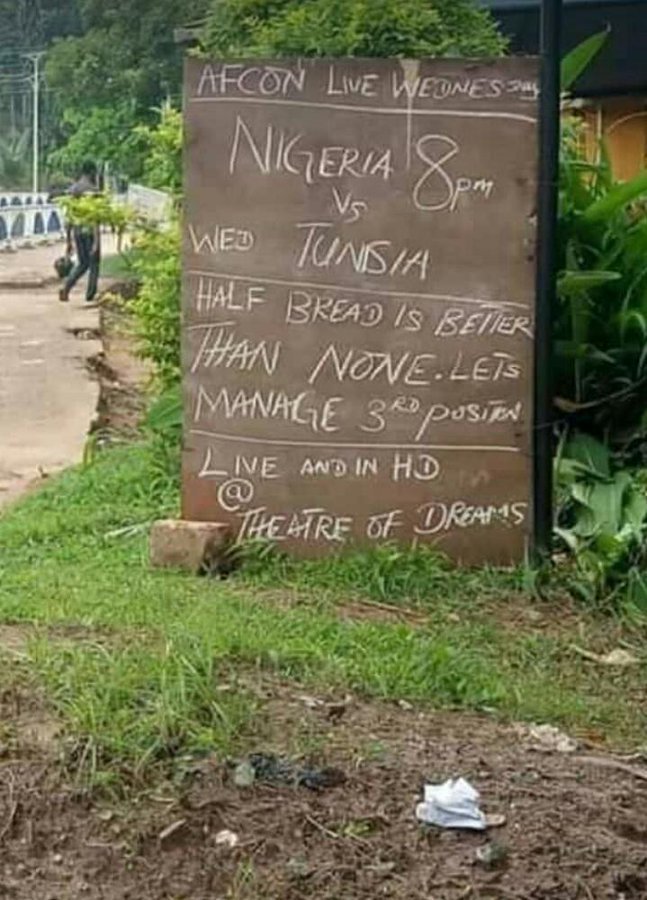 AFCON LIVE WEDNESDAY
NIGERIA 8pm
Vs
WED TUNISIA
HALF BREAD IS BETTER
THAN NONE. LETS
MANAGE 3RD POSITION
LIVE AND IN HD
@
THEATRE OF DREAMS